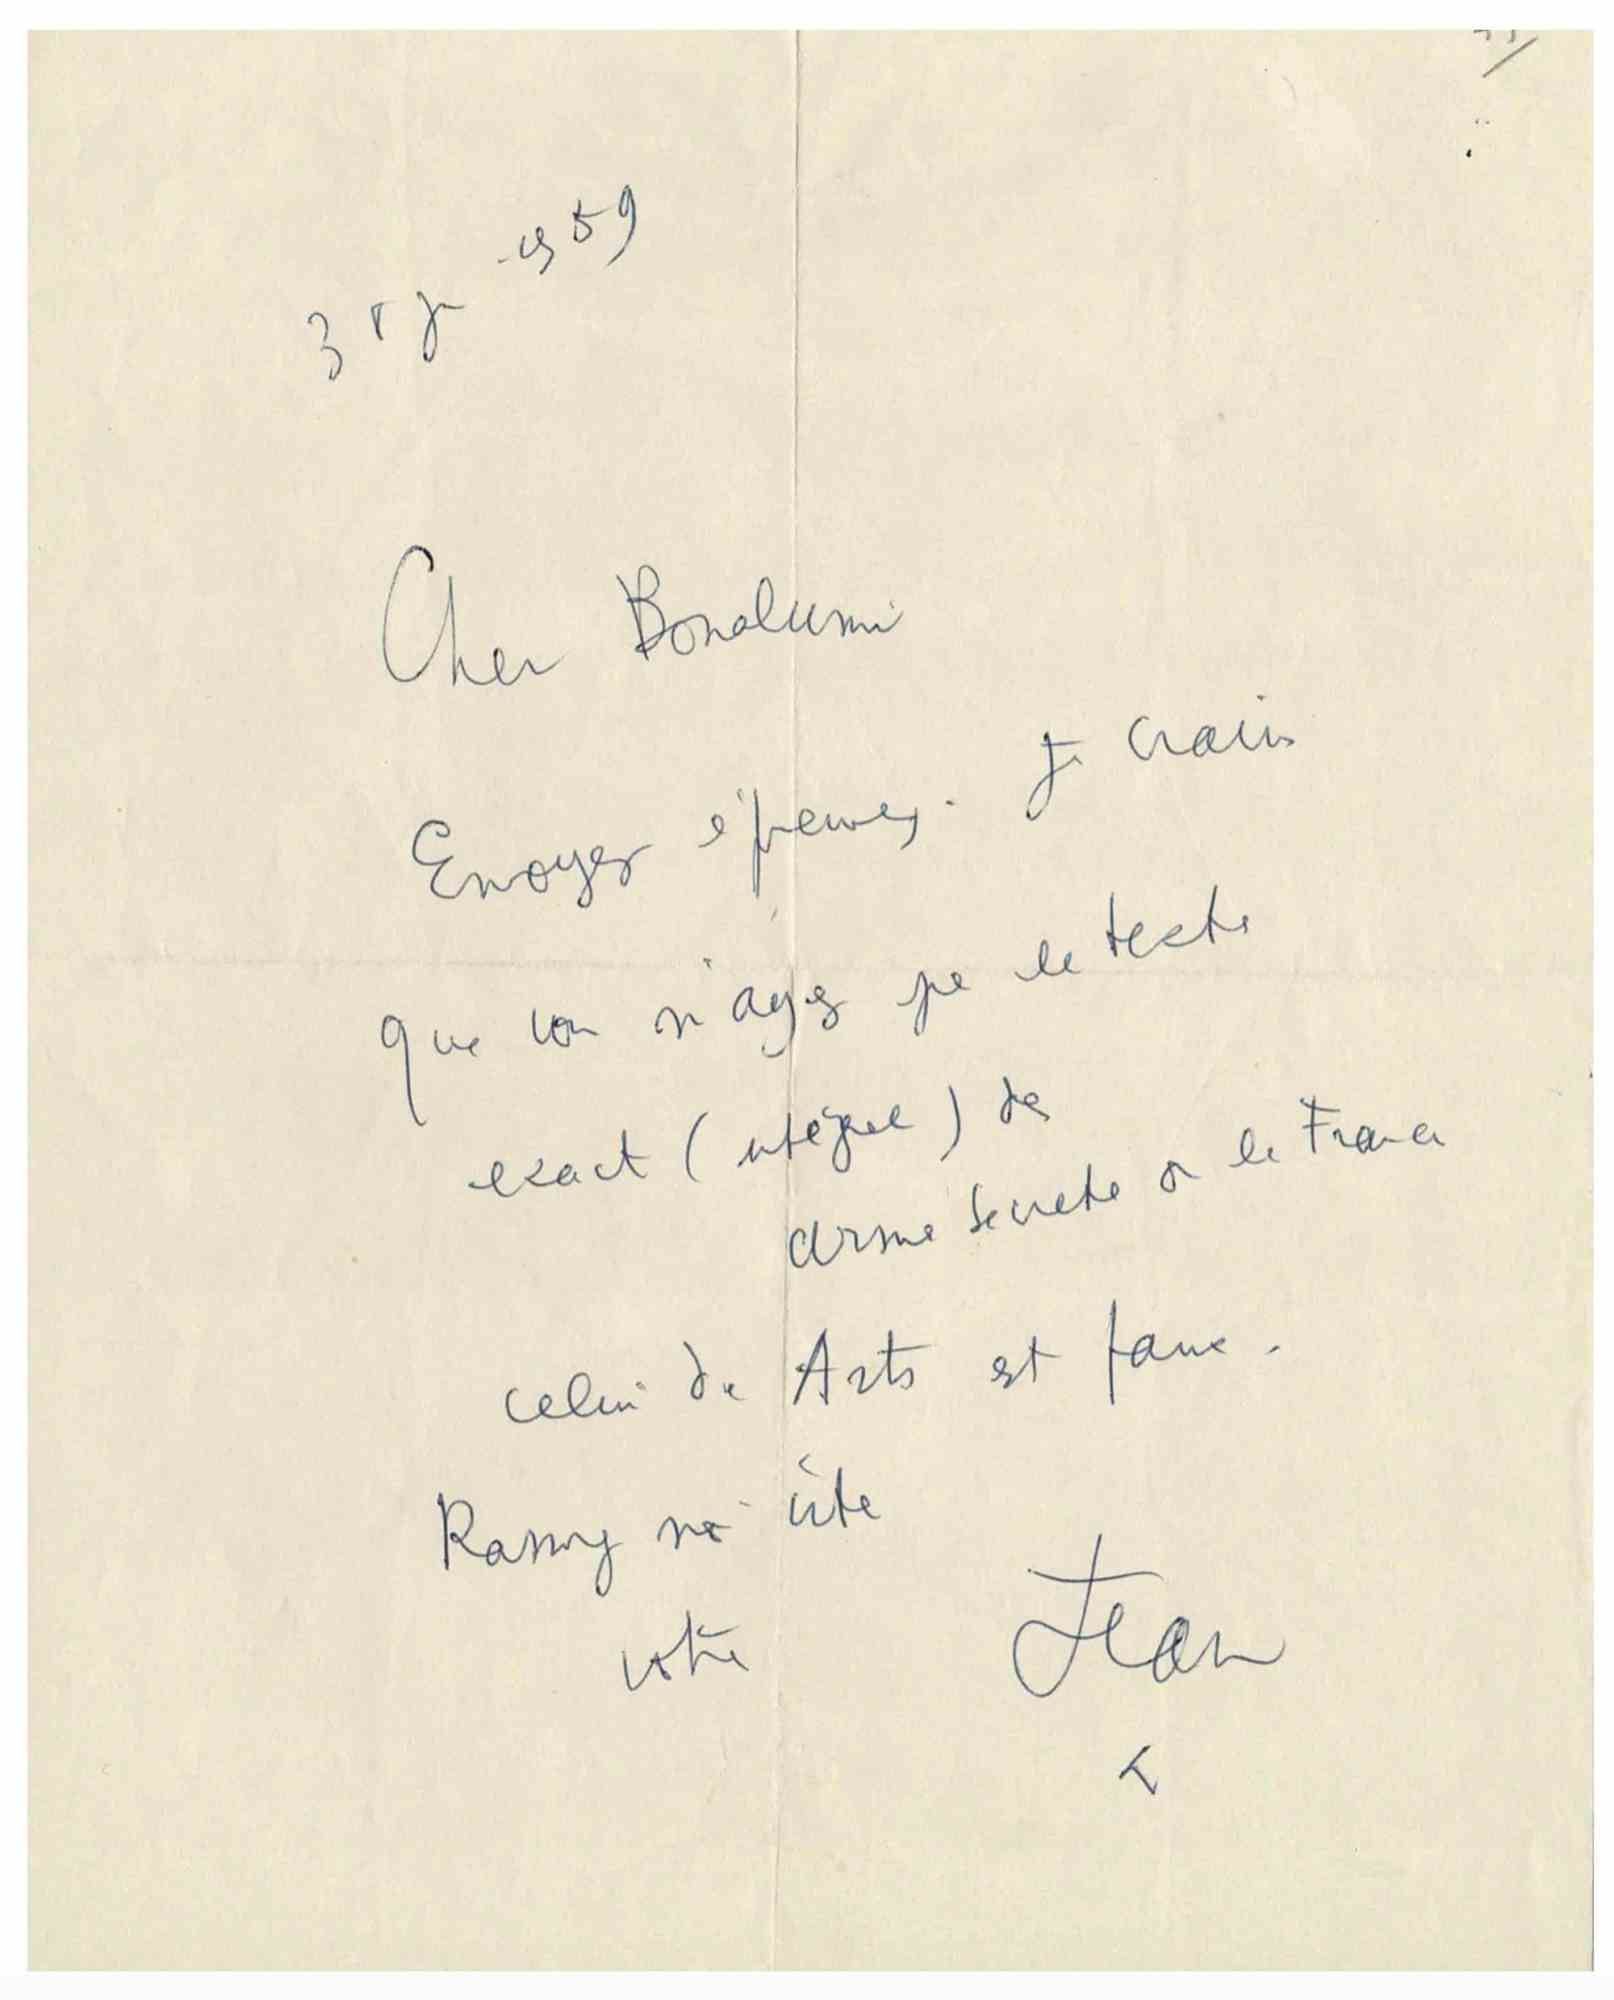 1959
Cher Bonalumi
Envoyez épreuves. Je crains
que vous n'ayez pas le texte
exact (intégral) des
armes secrètes de la France
celui de Arts est faux.
Rassurez moi vite
votre
Jean